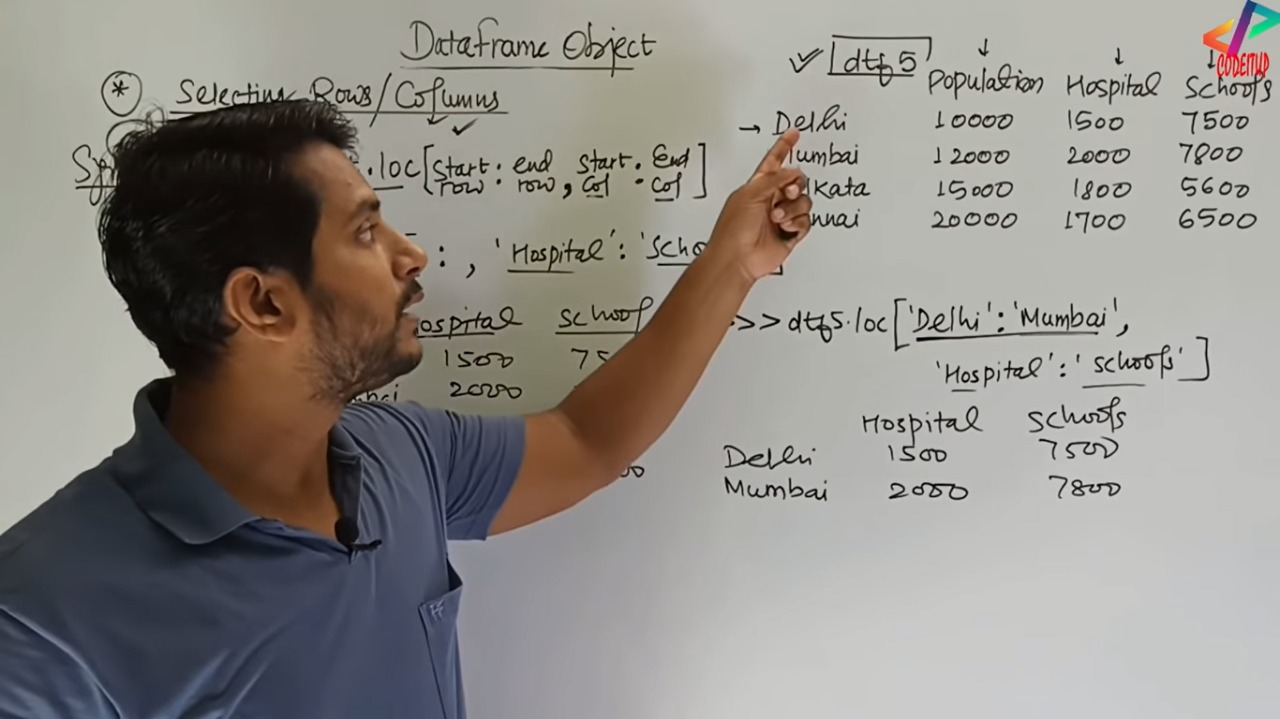 Dataframe Object
* Selecting Rows/Columns
.loc[start row : end row, start col : End col]
: , 'Hospital' :
Hospital School
1500
2000
✓ dtf5 Population Hospital Schools
→ Delhi 10000 1500 7500
Mumbai 12000 2000 7800
15000 1800 5600
20000 1700 6500
>> dtf5.loc['Delhi':'Mumbai',
'Hospital':'Schools']
Hospital Schools
Delhi 1500 7500
Mumbai 2000 7800
CODEITUP